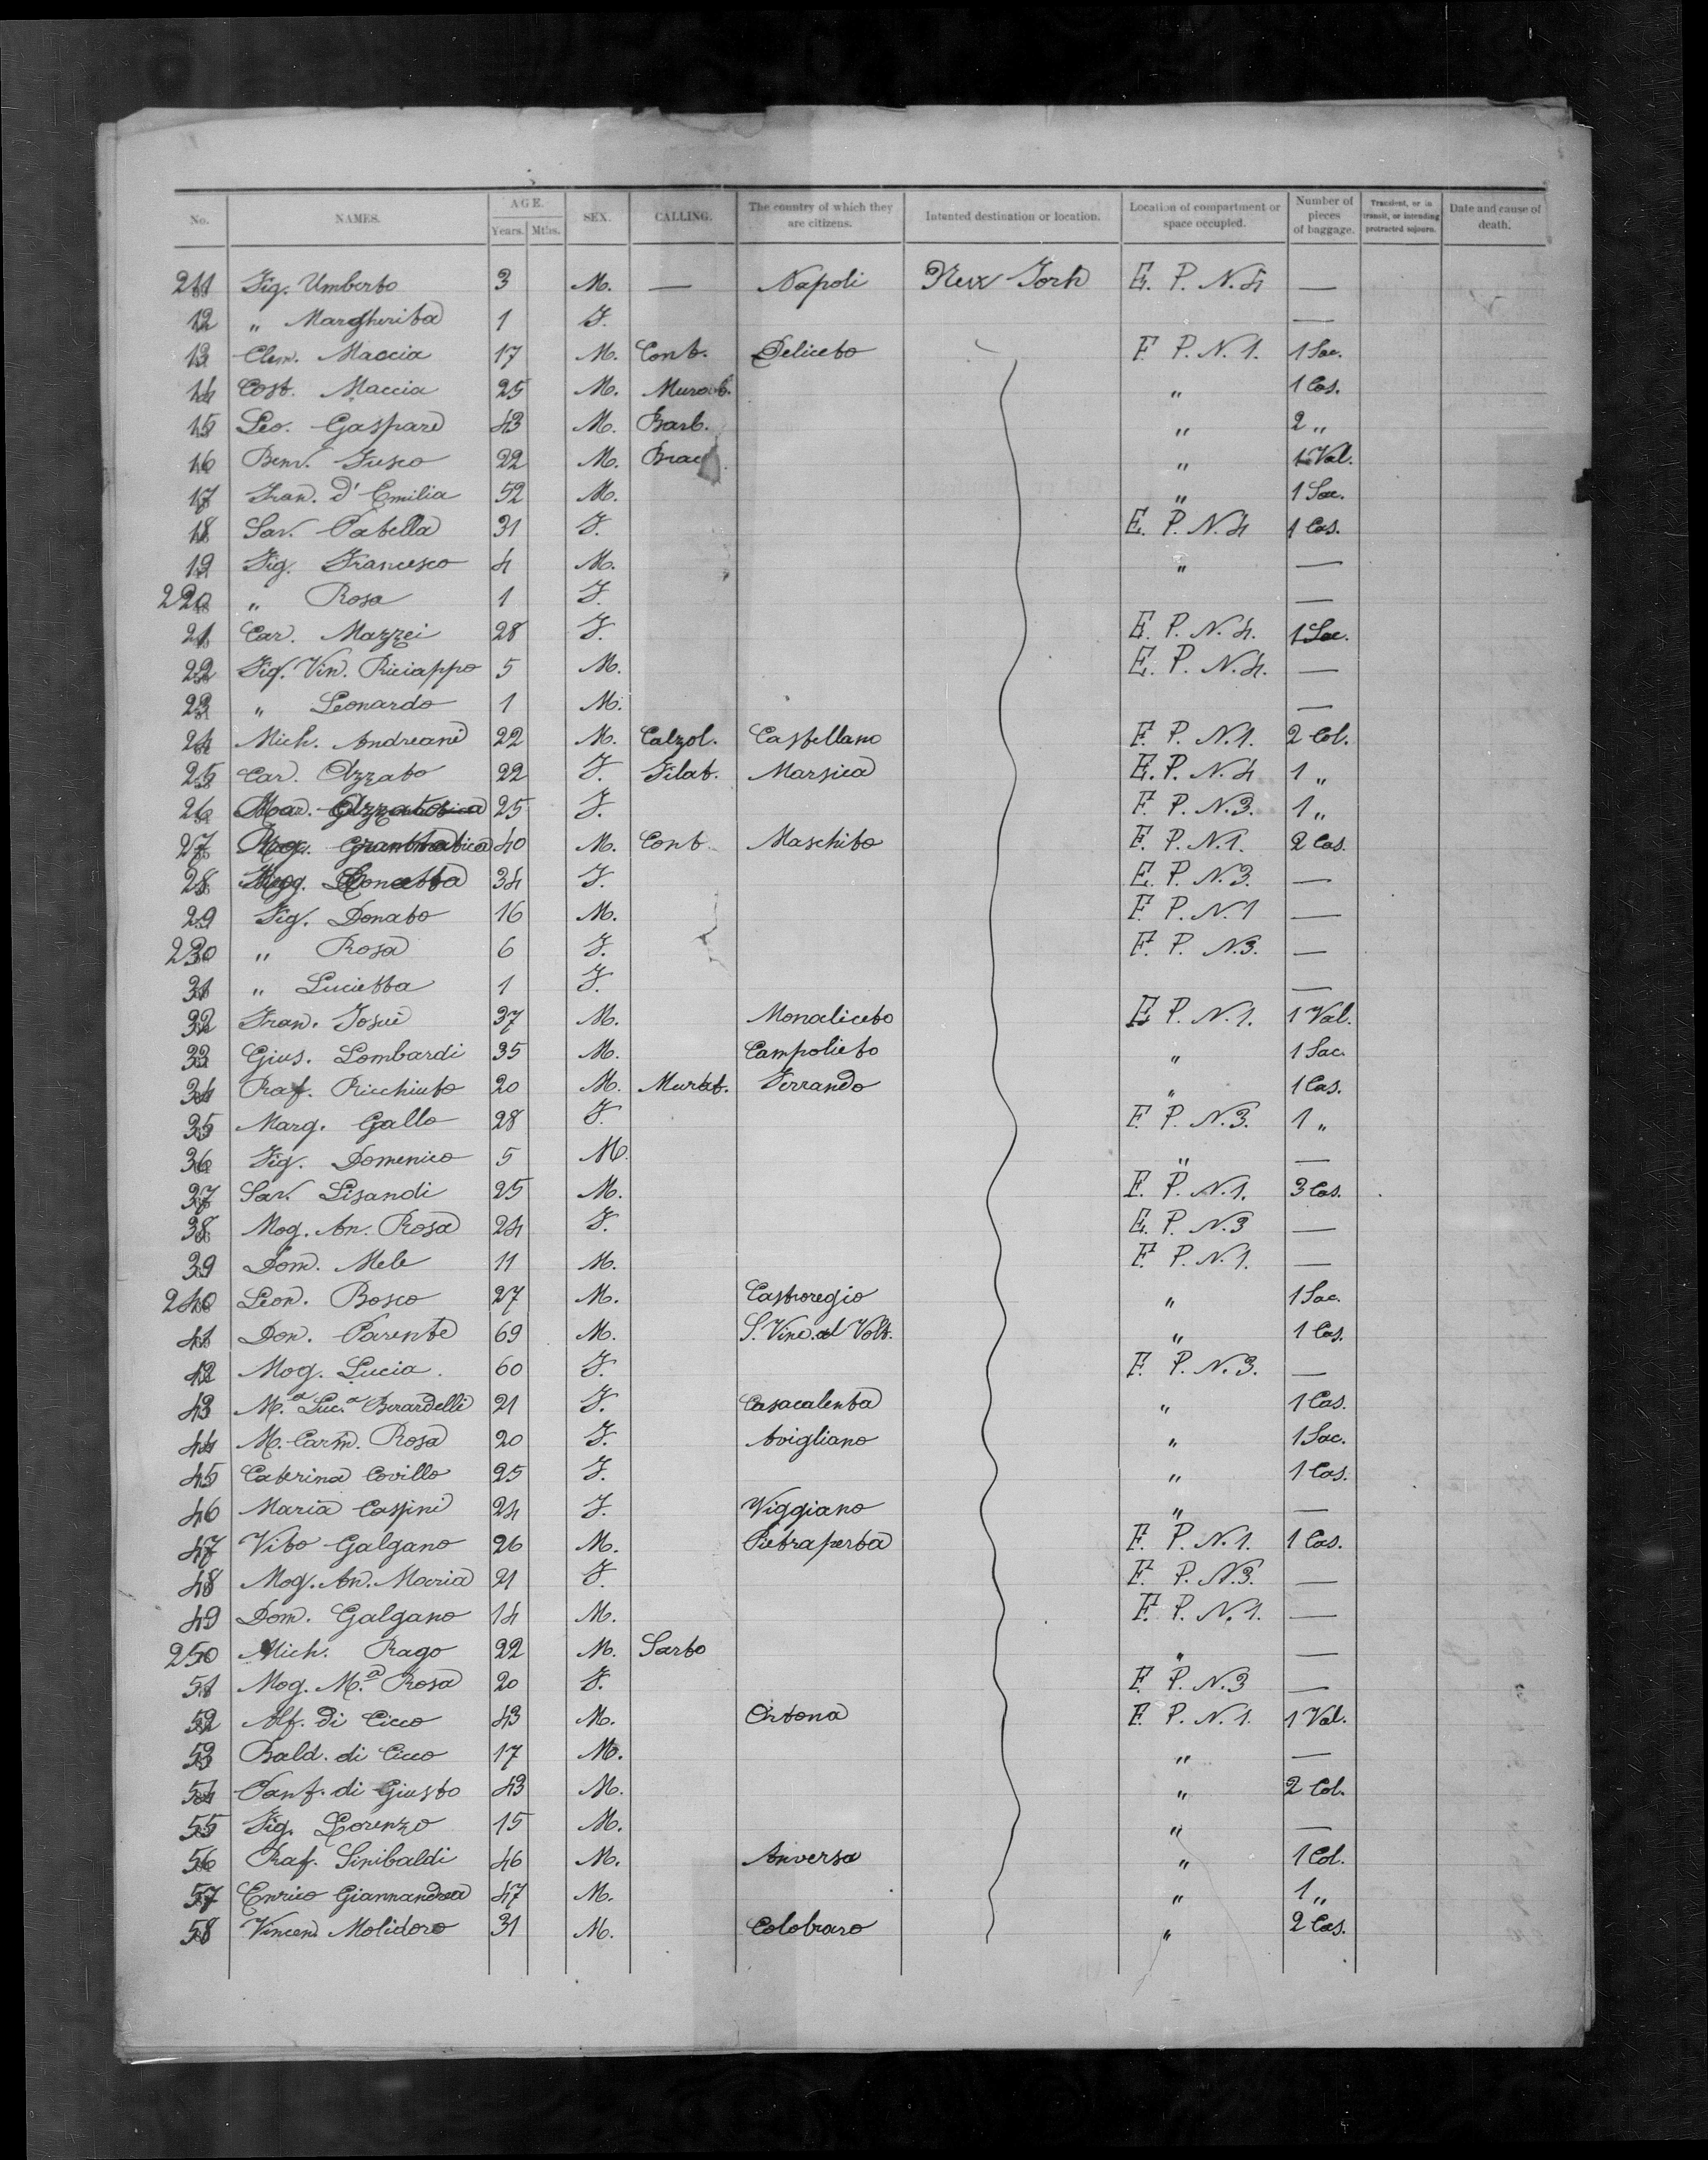 No. NAMES. AGE. Years. Mths. SEX. CALLING. The country of which they are citizens. Intanted destination or location. Location of compartment or space occupied. Number of pieces of baggage. Transient, or in transit, or intending protracted sojourn. Date and cause of death.
211 Fig. Umberto 3 M. — Napoli New York E. P. N. 4 —
12 " Margherita 1 F. —
13 Clem. Maccia 17 M. Cont. Deliceto F. P. N. 1. 1 Sac.
14 Cost. Maccia 25 M. Murat. " 1 Cas.
15 Leo. Gaspare 43 M. Barb. " 2 "
16 Ben. Fusco 22 M. Brac. " 1 Val.
17 Fran. d'Emilia 52 M. " 1 Sac.
18 Sav. Patella 31 F. E. P. N. 4 1 Cas.
19 Fig. Francesco 4 M. " —
220 " Rosa 1 F. —
21 Car. Mazzei 28 F. E. P. N. 4. 1 Sac.
22 Fig. Vin. Riciappo 5 M. E. P. N. 4. —
23 " Leonardo 1 M. —
24 Mich. Andreani 22 M. Calzol. Castellano F. P. N. 1. 2 Col.
25 Car. Azzato 22 F. Filat. Marsica E. P. N. 4 1 "
26 25 F. F. P. N. 3. 1 "
27 Grammatica 40 M. Cont. Maschito F. P. N. 1. 2 Cas.
28 Mog. Concetta 34 F. E. P. N. 3. —
29 Fig. Donato 16 M. F. P. N. 1 —
230 " Rosa 6 F. F. P. N. 3. —
31 " Lucietta 1 F. —
32 Fran. Josue 37 M. Monaliceto E P. N. 1. 1 Val.
33 Gius. Lombardi 35 M. Campolieto " 1 Sac.
34 Raf. Ricchiuto 20 M. Murat. Ferrando " 1 Cas.
35 Marg. Gallo 28 F. F. P. N. 3. 1 "
36 Fig. Domenico 5 M. " —
37 Sav. Lisandi 25 M. F. P. N. 1. 3 Cas.
38 Mog. An. Rosa 24 F. E. P. N. 3 —
39 Dom. Mele 11 M. F. P. N. 1. —
240 Leon. Bosco 27 M. Castroregio " 1 Sac.
41 Don. Parente 69 M. S. Vinc. al Volt. " 1 Cas.
42 Mog. Lucia. 60 F. F. P. N. 3. —
43 M.a Luc.a Berardelli 21 F. Casacalenta " 1 Cas.
44 M. Carm. Rosa 20 F. Avigliano " 1 Sac.
45 Caterina Covillo 25 F. " 1 Cas.
46 Maria Caspini 24 F. Viggiano " —
47 Vito Galgano 26 M. Pietraperta F. P. N. 1. 1 Cas.
48 Mog. An. Maria 21 F. F. P. N. 3. —
49 Dom. Galgano 14 M. F. P. N. 1. —
250 Mich. Rago 22 M. Sarto " —
51 Mog. M.a Rosa 20 F. F. P. N. 3 —
52 Alf. di Cicco 43 M. Ortona F. P. N. 1. 1 Val.
53 Bald. di Cicco 17 M. " —
54 Panf. di Giusto 43 M. " 2 Col.
55 Fig. Lorenzo 15 M. " —
56 Raf. Sinibaldi 46 M. Anversa " 1 Col.
57 Enrico Giannandrea 47 M. " 1 "
58 Vincen. Molidoro 31 M. Colobraro " 2 Cas.